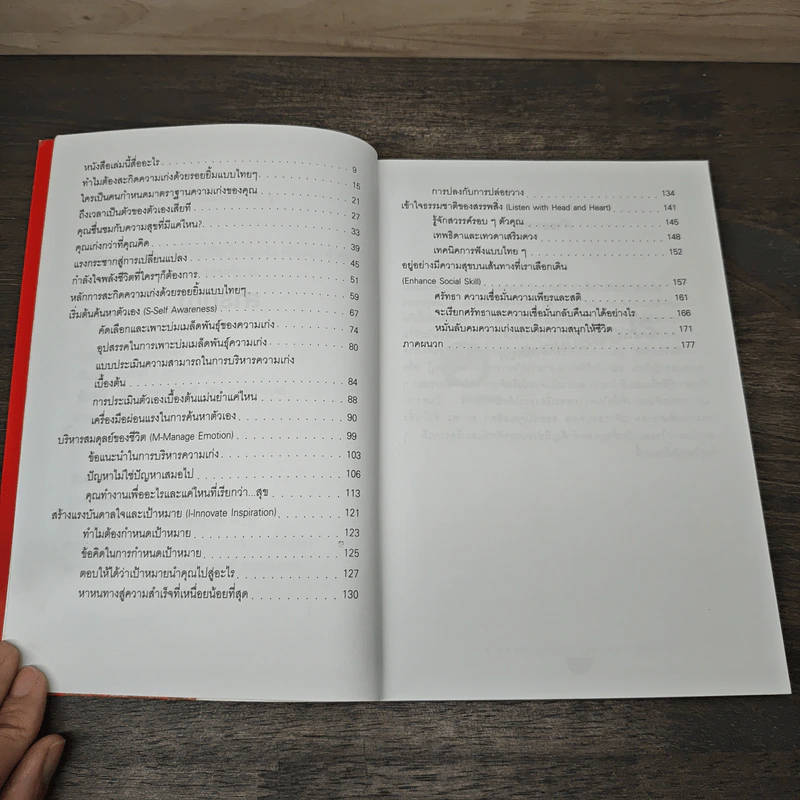 หนังสือเล่มนี้สื่ออะไร . . . . . . . . . . . . . . . . . . . . 9
ทำไมต้องสะกิดความเก่งด้วยรอยยิ้มแบบไทยๆ . . . . . . . . . . 15
ใครเป็นคนกำหนดมาตราฐานความเก่งของคุณ . . . . . . . . . . 21
ถึงเวลาเป็นตัวของตัวเองเสียที . . . . . . . . . . . . . . . . 27
คุณชื่นชมกับความสุขที่มีแค่ไหน?. . . . . . . . . . . . . . . 33
คุณเก่งกว่าที่คุณคิด . . . . . . . . . . . . . . . . . . . . 39
แรงกระชากสู่การเปลี่ยนแปลง . . . . . . . . . . . . . . . . 45
กำลังใจพลังชีวิตที่ใครๆก็ต้องการ. . . . . . . . . . . . . . . 51
หลักการสะกิดความเก่งด้วยรอยยิ้มแบบไทยๆ . . . . . . . . . . 59
เริ่มต้นค้นหาตัวเอง (S-Self Awareness) . . . . . . . . . . . . 67
คัดเลือกและเพาะบ่มเมล็ดพันธุ์ของความเก่ง . . . . . . . . . . 74
อุปสรรคในการเพาะบ่มเมล็ดพันธุ์ความเก่ง . . . . . . . . . . 80
แบบประเมินความสามารถในการบริหารความเก่ง
เบื้องต้น . . . . . . . . . . . . . . . . . . . . . . . . . 84
การประเมินตัวเองเบื้องต้นแม่นยำแค่ไหน . . . . . . . . . . . 88
เครื่องมือผ่อนแรงในการค้นหาตัวเอง . . . . . . . . . . . . . 90
บริหารสมดุลย์ของชีวิต (M-Manage Emotion) . . . . . . . . . . 99
ข้อแนะนำในการบริหารความเก่ง . . . . . . . . . . . . . . . 103
ปัญหาไม่ใช่ปัญหาเสมอไป . . . . . . . . . . . . . . . . . 106
คุณทำงานเพื่ออะไรและแค่ไหนที่เรียกว่า...สุข . . . . . . . . . 113
สร้างแรงบันดาลใจและเป้าหมาย (I-Innovate Inspiration). . . . . . 121
ทำไมต้องกำหนดเป้าหมาย . . . . . . . . . . . . . . . . . 123
ข้อคิดในการกำหนดเป้าหมาย . . . . . . . . . . . . . . . . 125
ตอบให้ได้ว่าเป้าหมายนำคุณไปสู่อะไร . . . . . . . . . . . . 127
หาหนทางสู่ความสำเร็จที่เหนื่อยน้อยที่สุด . . . . . . . . . . . 130
การปลงกับการปล่อยวาง . . . . . . . . . . . . . . . . . . 134
เข้าใจธรรมชาติของสรรพสิ่ง (Listen with Head and Heart) . . . . . 141
รู้จักสวรรค์รอบ ๆ ตัวคุณ . . . . . . . . . . . . . . . . . 145
เทพธิดาและเทวดาเสริมดวง . . . . . . . . . . . . . . . . 148
เทคนิคการฟังแบบไทย ๆ . . . . . . . . . . . . . . . . . 152
อยู่อย่างมีความสุขบนเส้นทางที่เราเลือกเดิน
(Enhance Social Skill) . . . . . . . . . . . . . . . . . . . 157
ศรัทธา ความเชื่อมั่นความเพียรและสติ . . . . . . . . . . . . 161
จะเรียกศรัทธาและความเชื่อมั่นกลับคืนมาได้อย่างไร . . . . . . 166
หมั่นลับคมความเก่งและเติมความสนุกให้ชีวิต . . . . . . . . . 171
ภาคผนวก . . . . . . . . . . . . . . . . . . . . . . . . . 177